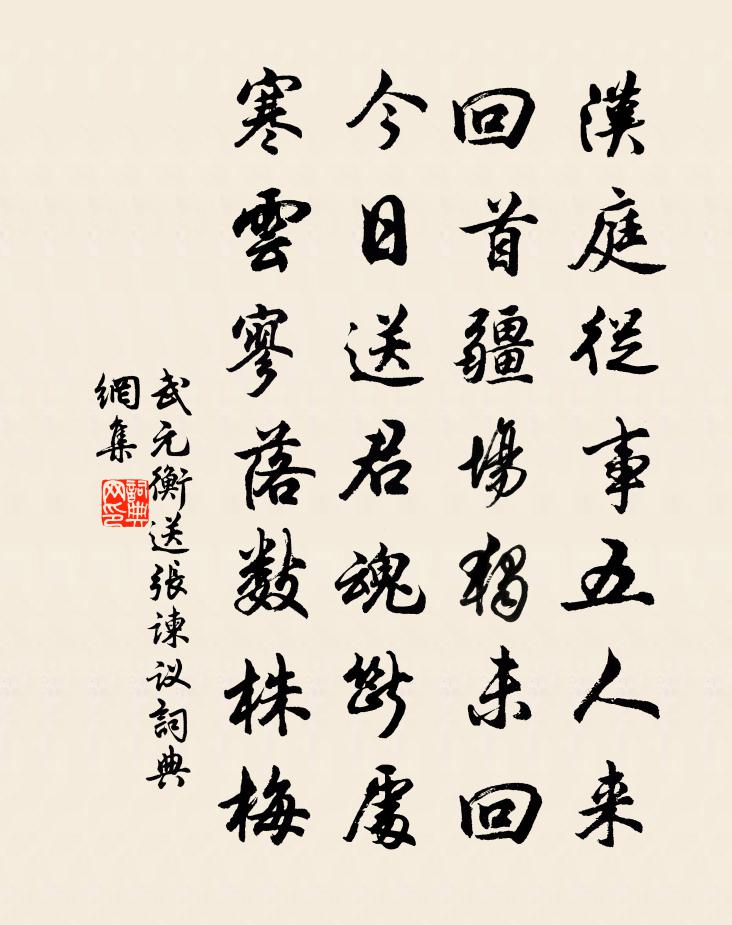 漢庭從事五人来
回首疆場獨未回
今日送君魂斷處
寒雲寥落數株梅
武元衡送張諫议詞典
網集
詞典網印